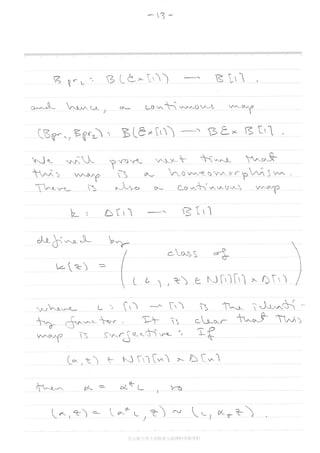 -13-
B pr₂ : B(C × [1]) → B[1].
and hence, a continuous map
(Bpr₁, Bpr₂) : B(C × [1]) → BC × B[1].
We will prove next time that
this map is a homeomorphism.
There is also a continuous map
k : Δ[1] → B[1]
defined by
class of
k(z) =
(ι, z) ∈ N[1][1] × Δ[1]
where ι : [1] → [1] is the identi-
ty functor. It is clear that this
map is surjective: If
(α, z) ∈ N[1][n] × Δ[n]
then α = α*ι, so
(α, z) = (α*ι, z) ~ (ι, α_* z).